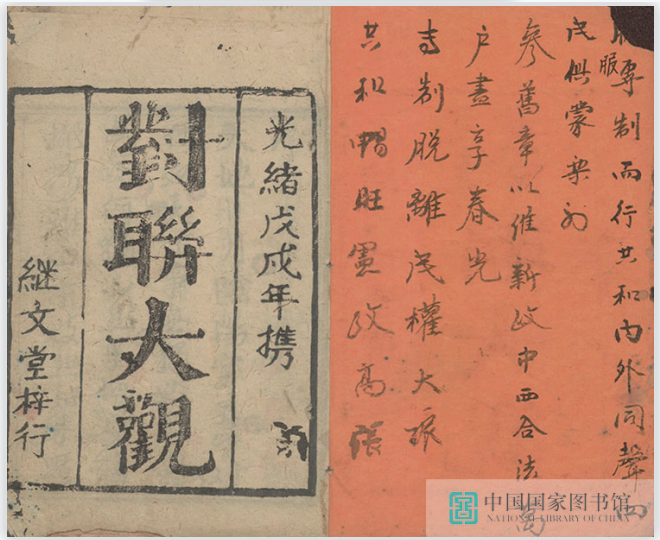 服專制而行共和內外同聲四
民俱蒙樂利
參舊章以維新政中西合法萬
戶盡享春光
专制脫離民權大張
共和暢旺憲政高張
光緒戊戌年攜
對聯大觀
继文堂梓行
中国国家图书馆
NATIONAL LIBRARY OF CHINA